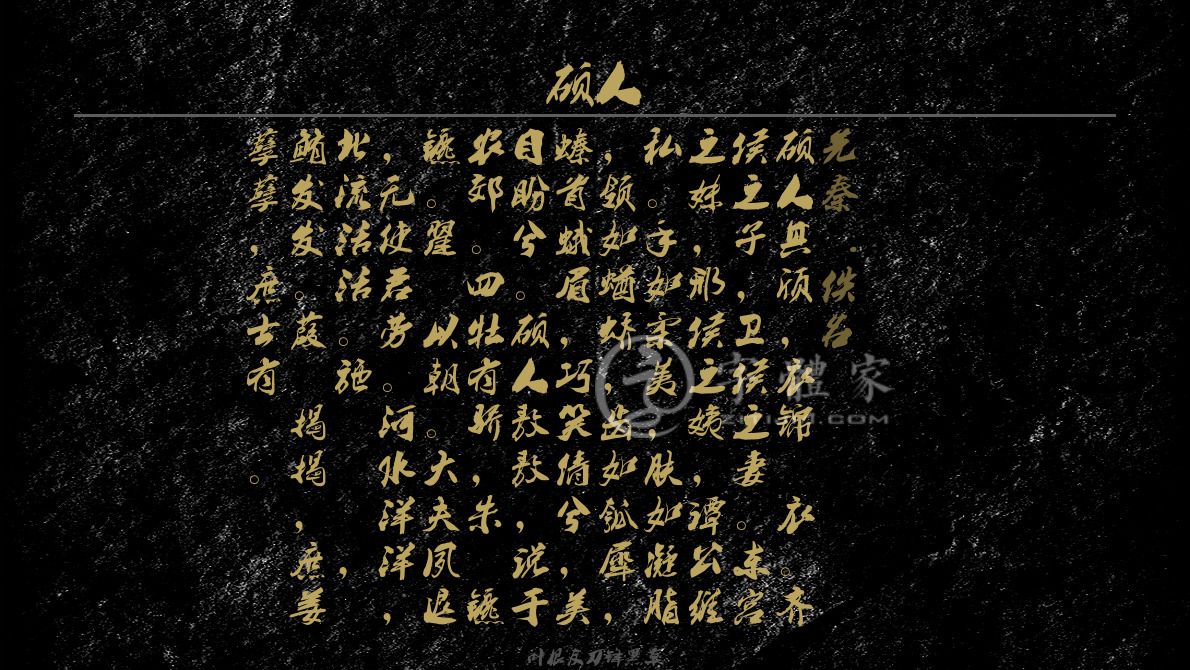 硕人
先秦 · 佚名
硕人其颀，衣锦 衣。齐
侯之子，卫侯之妻。东宫
之妹，邢侯之姨，谭公维
私。手如柔荑，肤如凝脂
，领如蝤蛴，齿如瓠犀，
螓首蛾眉，巧笑倩兮，美
目盼兮。硕人敖敖，说于
农郊。四牡有骄，朱 镳
镳。翟 以朝。大夫夙退
，无使君劳。河水洋洋，
北流活活。施
鲔发发。葭 揭揭，庶姜
孽孽，庶士有 。
字體家